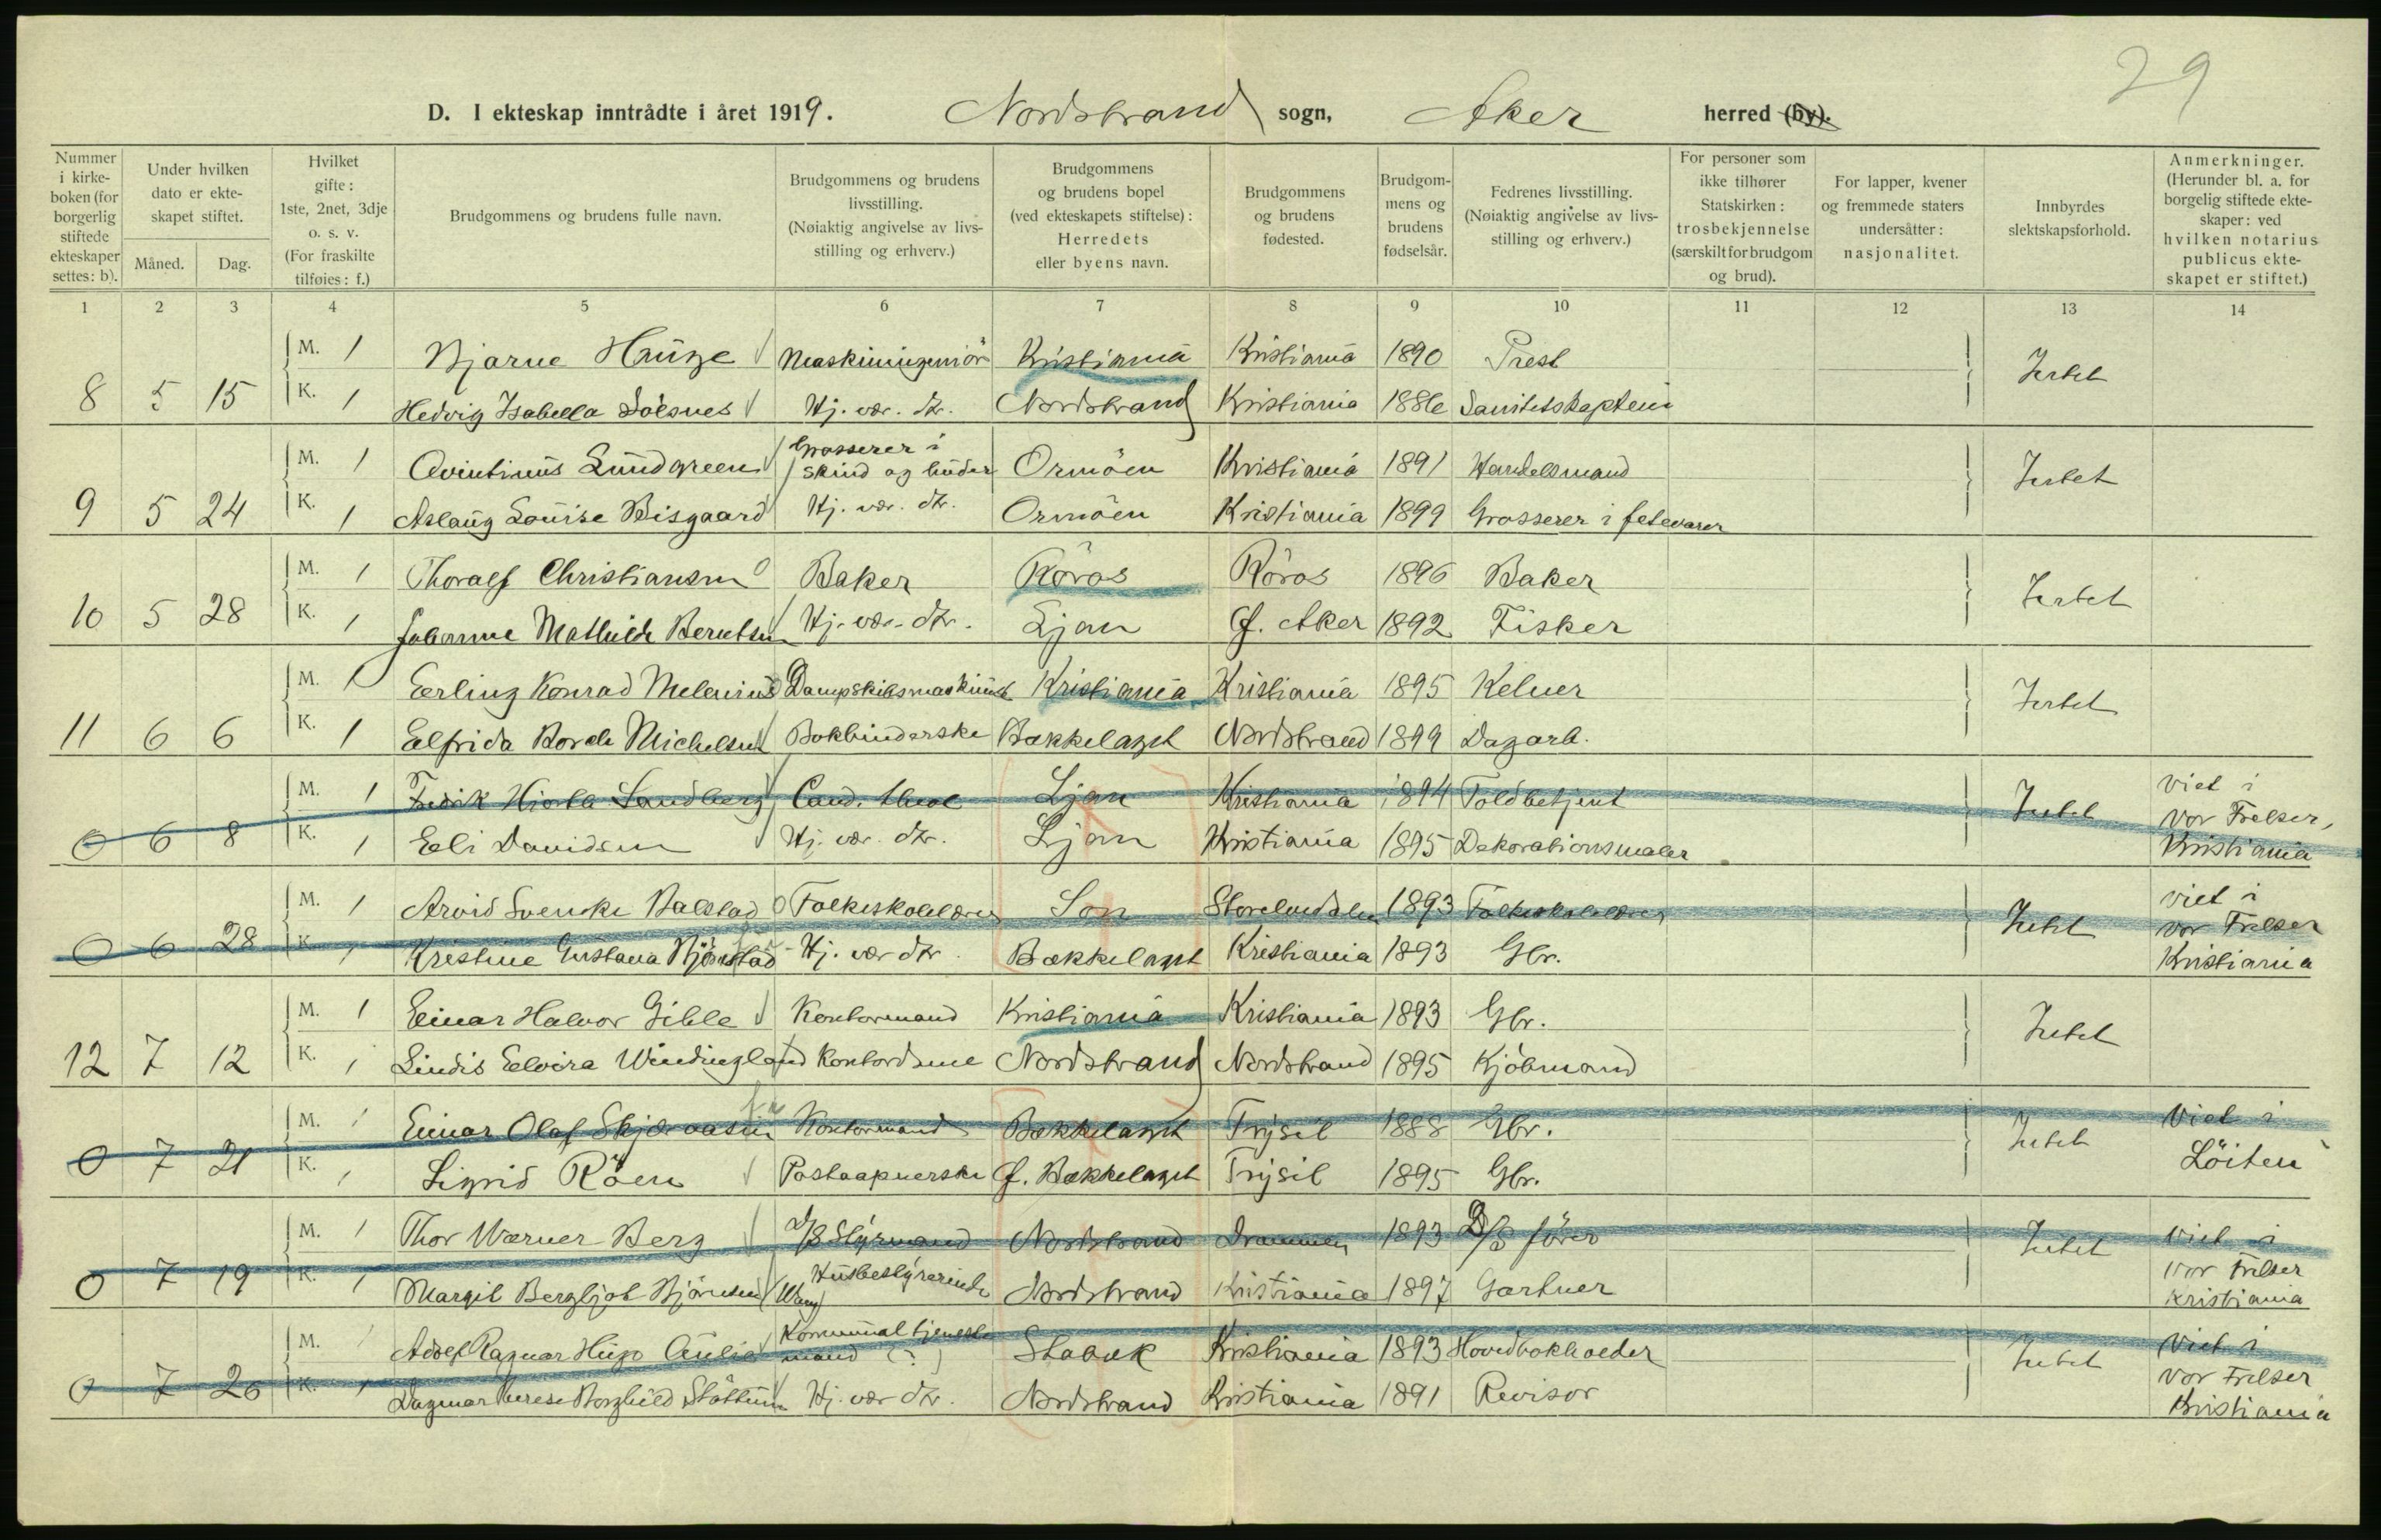 29
D. I ekteskap inntrådte i året 1919. Nordstrand sogn, Aker herred (by).
Nummer i kirkeboken (for borgerlig stiftede ekteskaper settes: b).
Under hvilken dato er ekteskapet stiftet.
Måned. Dag.
Hvilket gifte: 1ste, 2net, 3dje o. s. v. (For fraskilte tilføies: f.)
Brudgommens og brudens fulle navn.
Brudgommens og brudens livsstilling. (Nøiaktig angivelse av livsstilling og erhverv.)
Brudgommens og brudens bopel (ved ekteskapets stiftelse): Herredets eller byens navn.
Brudgommens og brudens fødested.
Brudgommens og brudens fødselsår.
Fedrenes livsstilling. (Nøiaktig angivelse av livsstilling og erhverv.)
For personer som ikke tilhører Statskirken: trosbekjennelse (særskilt for brudgom og brud).
For lapper, kvener og fremmede staters undersåtter: nasjonalitet.
Innbyrdes slektskapsforhold.
Anmerkninger. (Herunder bl. a. for borgelig stiftede ekteskaper: ved hvilken notarius publicus ekteskapet er stiftet.)
1 2 3 4 5 6 7 8 9 10 11 12 13 14
M. 1 Bjarne Hauge Maskiningeniør Kristiania Kristiania 1890 Prest
8 5 15 K. 1 Hedvig Isabella Solsnes Hj. vær. dtr. Nordstrand Kristiania 1886 Sanitetskaptein Intet
M. 1 Qvintinus Lundgreen Grosserer i skind og huder Ormöen Kristiania 1891 Handelsmand
9 5 24 K. 1 Aslaug Louise Bisgaard Hj. vær. dtr. Ormöen Kristiania 1899 Grosserer i fetevarer Intet
M. 1 Thoralf Christiansen Baker Röros Röros 1896 Baker
10 5 28 K. 1 Johanne Mathilde Berntsen Hj. vær. dtr. Ljan Ø. Aker 1892 Fisker Intet
M. 1 Erling Konrad Melenius Dampskibsmaskinist Kristiania Kristiania 1895 Kelner
11 6 6 K. 1 Elfrida Michelsen Bokbinderske Bækkelaget Nordstrand 1899 Dagarb. Intet
M. 1 Fredrik Sandberg Cand. theol Ljan Kristiania 1894 Toldbetjent
0 6 8 K. 1 Eli Davidsen Hj. vær. dtr. Ljan Kristiania 1895 Dekorationsmaler Intet viet i Vor Frelser, Kristiania
M. 1 Arvid Svenke Balstad Folkeskolelærer Son Storelvdalen 1893 Folkeskolelærer
0 6 28 K. 1 Kristine Gustava Björnstad Hj. vær dtr. Bækkelaget Kristiania 1893 Gbr. Intet viet i vor Frelser Kristiania
M. 1 Einar Halvor Gihle Kontormand Kristiania Kristiania 1893 Gbr.
12 7 12 K. 1 Lindis Elvira Windingland Kontordame Nordstrand Nordstrand 1895 Kjöbmand Intet
M. 1 Einar Olaf Skjæraasen Kontormand Bækkelaget Trysil 1888 Gbr.
0 7 21 K. 1 Sigrid Röen Postaapnerske Ø. Bækkelaget Trysil 1895 Gbr. Intet Viet i Löiten
M. 1 Thor Werner Berg D/S Styrmand Nordstrand Drammen 1893 D/S förer
0 7 19 K. 1 Margit Bergljot Björnsen Husbestyrerinde Nordstrand Kristiania 1897 Gartner Intet viet i vor Frelser Kristiania
M. 1 Adolf Ragnar Hugo Aulie Kommunal tjenestemand (?) Stabæk Kristiania 1893 Hovedbokholder
0 7 26 K. 1 Dagmar Therese Borghild Støttum Hj. vær dtr. Nordstrand Kristiania 1891 Revisor Intet Viet i Vor Frelser Kristiania